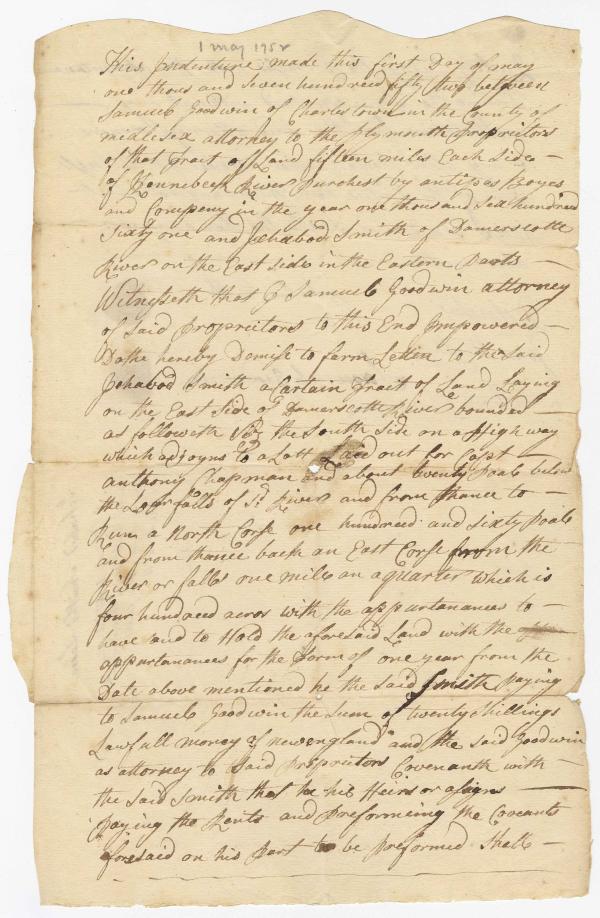 1 may 1752
This Indenture made this first Day of may
one thous and seven hundreed fifty two between
Samuel Goodwin of Charlestown in the County of
midlesex attorney to the plymouth Proprietors
of that Tract of Land fifteen miles Each Side
of Kennebeck River Purchest by antipas Boyes
and Compeny in the year one thousand Sex hundreed
Sixty one and Ichabod Smith of Damerscotte
River on the East Side in the Eastern Parts
Witnesseth that I Samuel Goodwin attorney
of said Proprietors to this End Impowered
Dothe hereby Demise to farm Letten to the Said
Ichabod Smith a Certain Tract of Land Laying
on the East Side of Damerscotte River bounded
as followeth the South Side on a High way
which adjoyns to a Lott Laid out for Capt
anthoney Chapman and about twenty Poals below
the Lour falls of Sd River and from thance to
Run a North Corse one hundreed and Sixty Poals
and from thance back an East Corse from the
River or falls one mile an a quarter which is
four hundreed acros with the appurtanances to
have and to Hold the aforesaid Land with the
appurtanances for the Tarm of one year from the
Date above mentioned he the Said Smith Paying
to Samuel Goodwin the Sum of twenty Shillings
Lawfull money of newengland and the said Goodwin
as attorney to said Proprietors Covenanth with
the Said Smith that he his Heirs or asigns
Paying the Rents and Preformeing the Covnants
aforesaid on his Part to be Preformed Shall